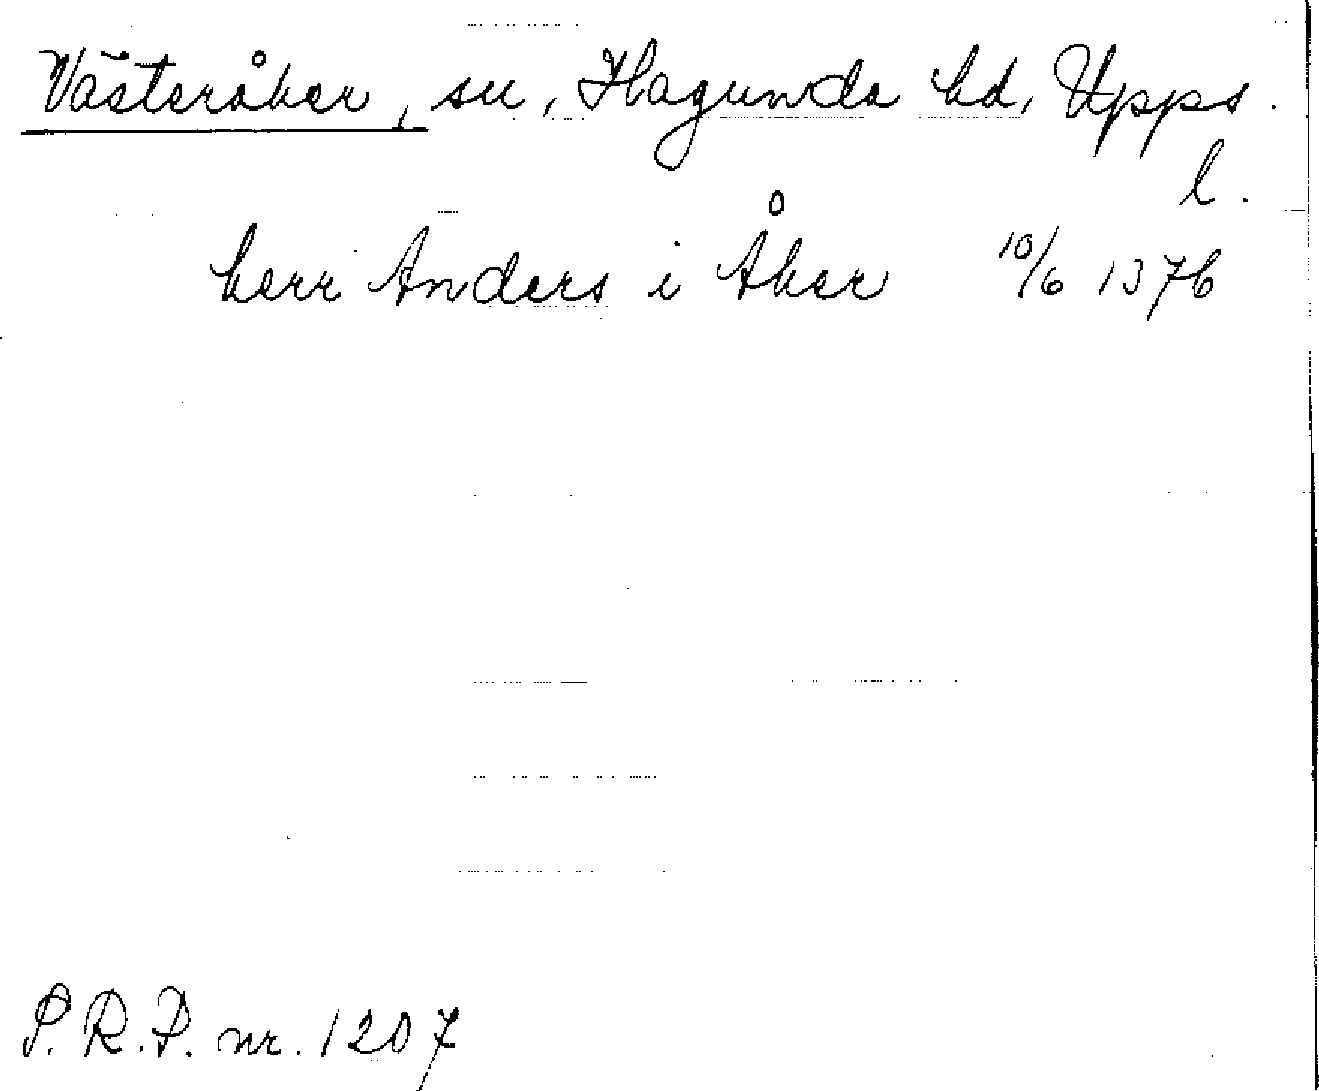 Västeråker, sn, Hagunda hd, Upps.
l.
herr Anders i Åker 10/6 1376
S.R.P. nr. 1207